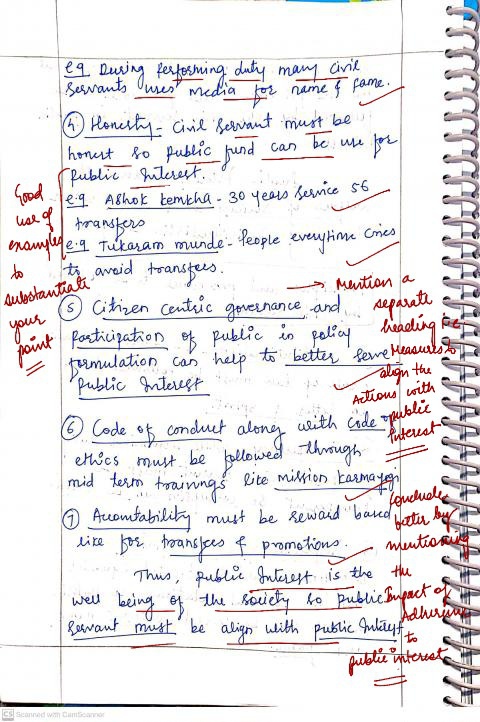 e.g During performing duty many civil
servants uses media for name & fame.
4) Honesty - Civil Servant must be
honest so public fund can be use for
public Interest.
e.g Ashok kemkha - 30 years service 56
transfers
e.g Tukaram munde - People everytime cries
to avoid transfers.
5) Citizen centric governance and
Participation of public in policy
formulation can help to better serve
Public Interest
6) Code of conduct along with Code of
ethics must be followed through
mid term trainings like mission karmayogi
7) Accountability must be reward based
like for transfers & promotions.
Thus, public Interest is the
well being of the society so public
servant must be align with public Interest
Good
use of
examples
to
substantiate
your
point
→ Mention a
separate
heading i.e
Measures to
align the
Actions with
public
interest
Conclude
better by
mentioning
the
Impact of
Adhering
to
public interest
CS Scanned with CamScanner